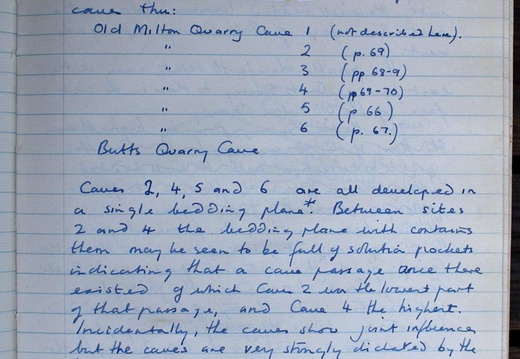 cave thus:
Old Milton Quarry Cave 1 (not described here).
" 2 (p. 69)
" 3 (pp 68-9)
" 4 (pp 69-70)
" 5 (p 66)
" 6 (p. 67.)
Butts Quarry Cave
Caves 2, 4, 5 and 6 are all developed in
a single bedding plane*. Between sites
2 and 4 the bedding plane which contains
them may be seen to be full of solution pockets
indicating that a cave passage once there
existed of which Cave 2 was the lowest part
of that passage, and Cave 4 the highest.
Incidentally, the caves show joint influences
but the caves are very strongly dictated by the